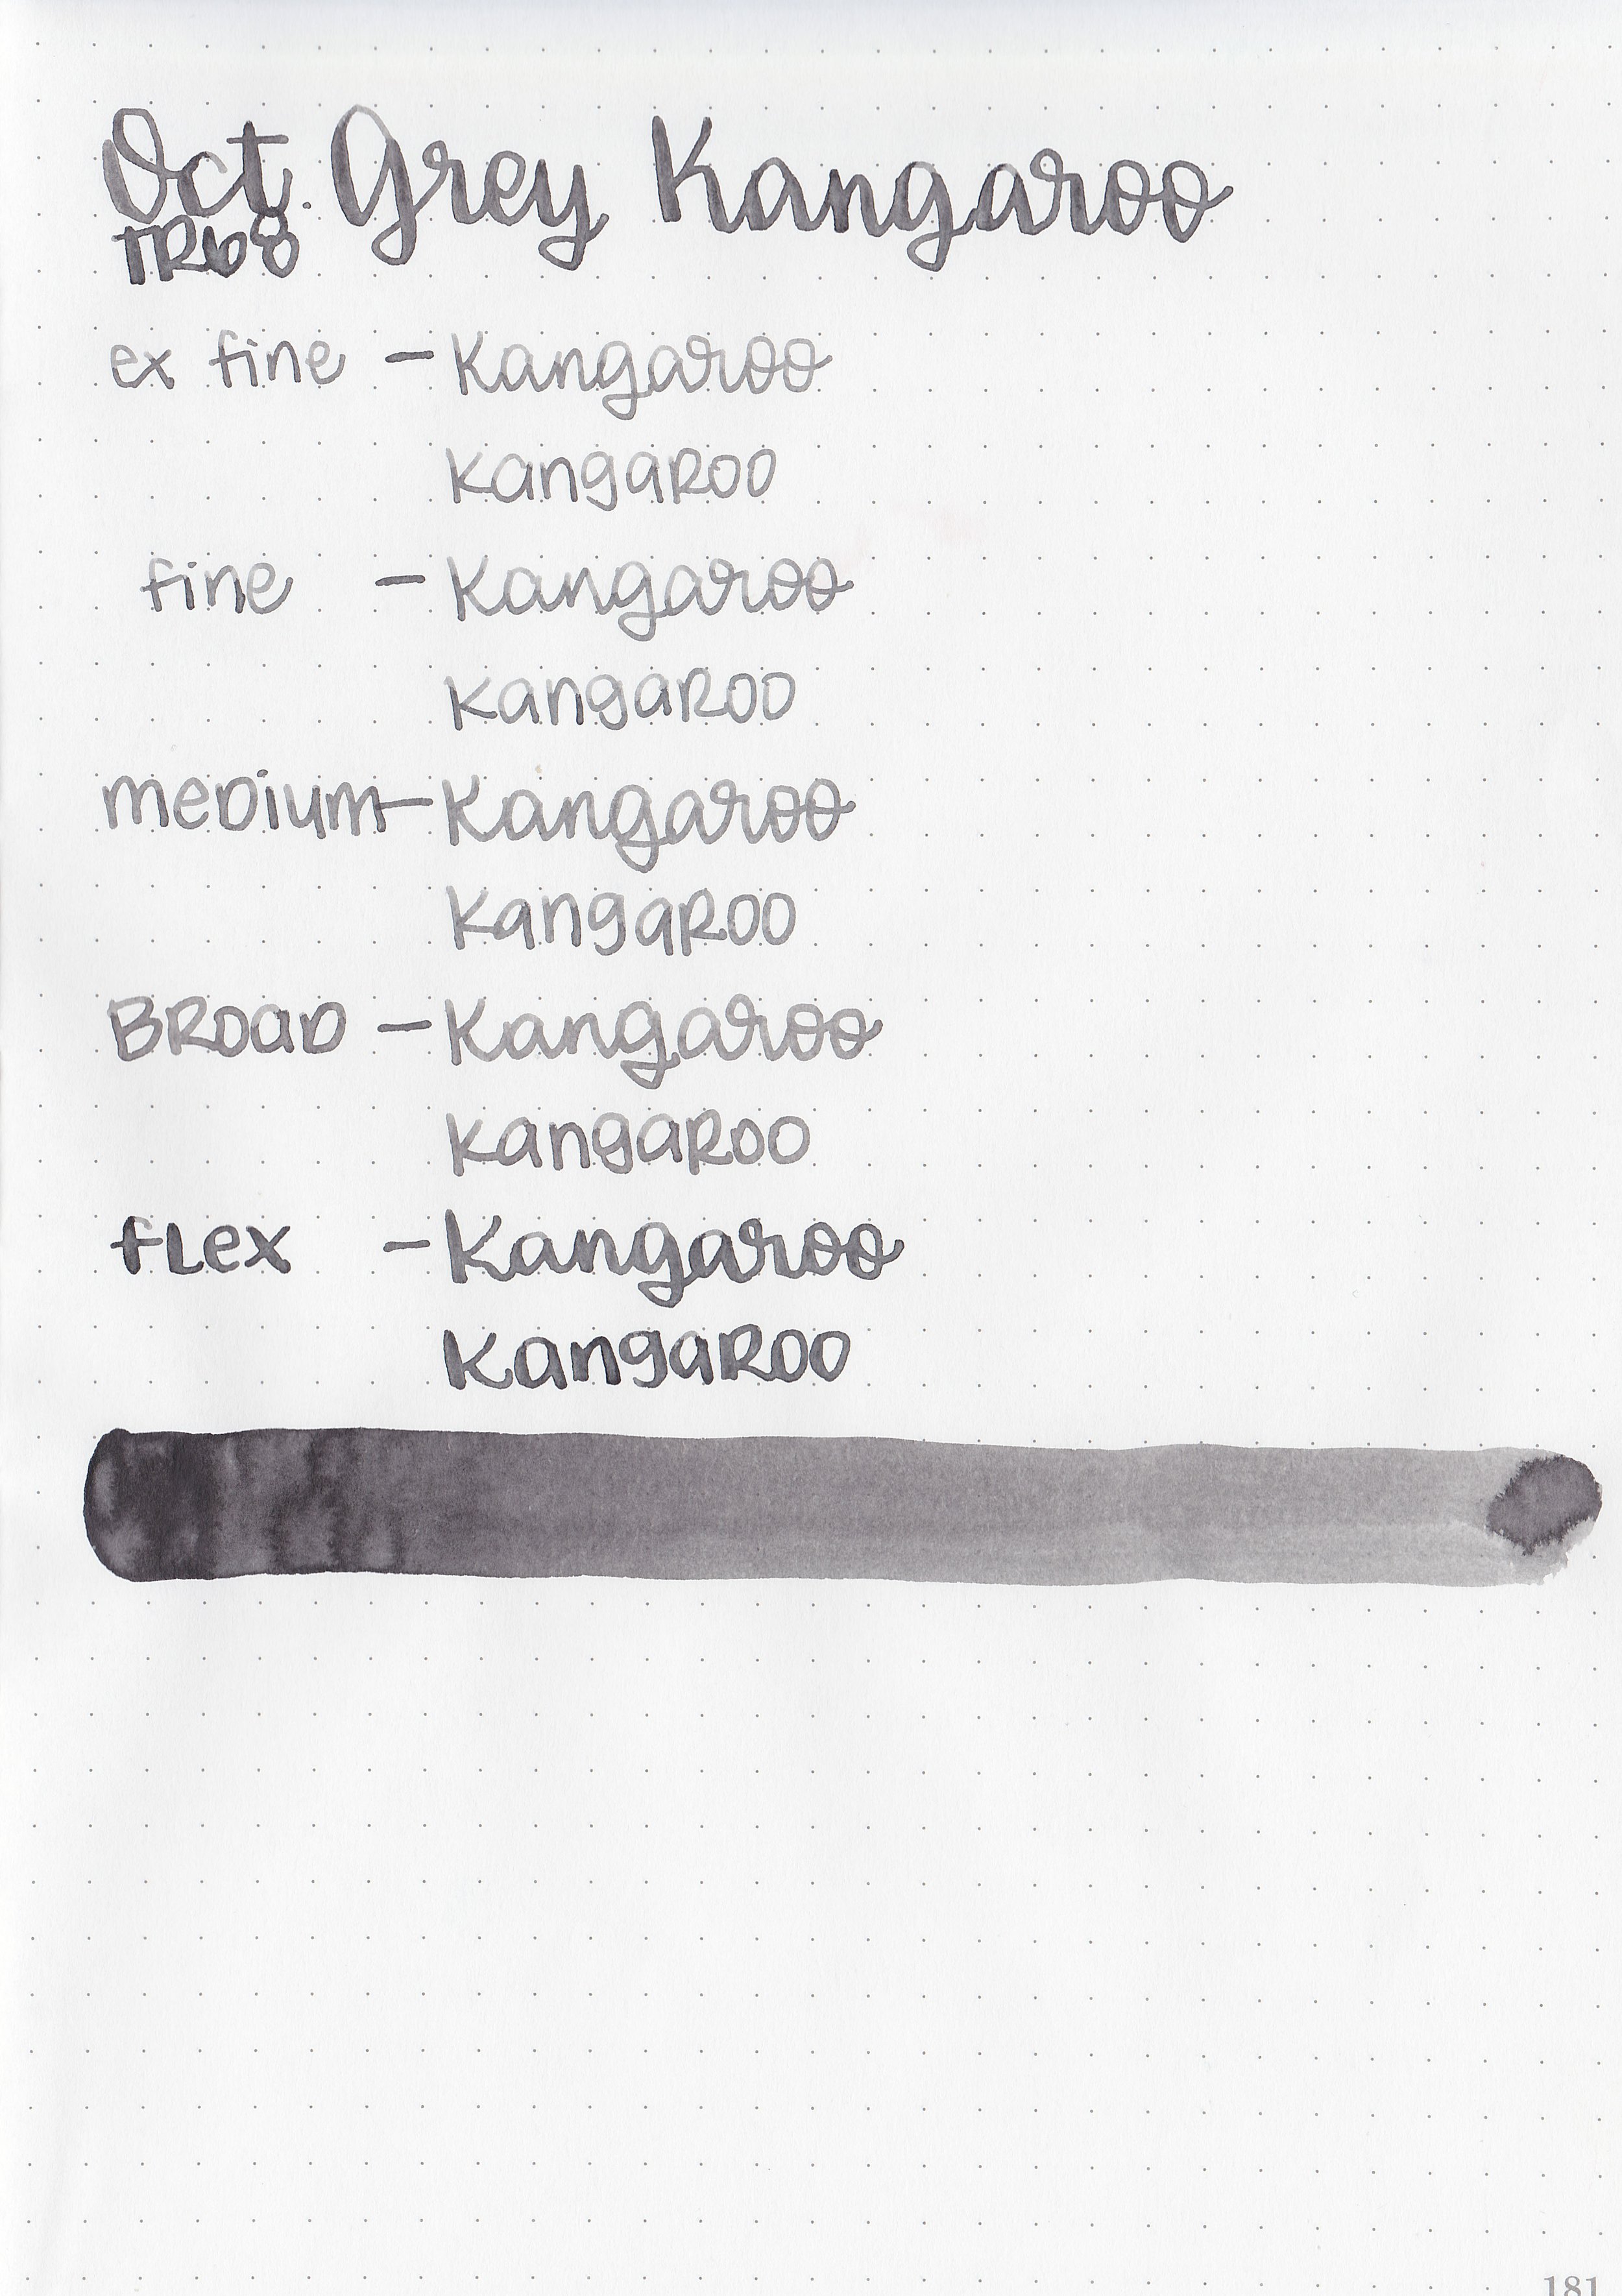 Oct. Grey Kangaroo
TR68
ex fine - Kangaroo
KangaRoo
fine - Kangaroo
KangaRoo
meDium - Kangaroo
KangaRoo
BRoaD - Kangaroo
KangaRoo
fLex - Kangaroo
KangaRoo
181